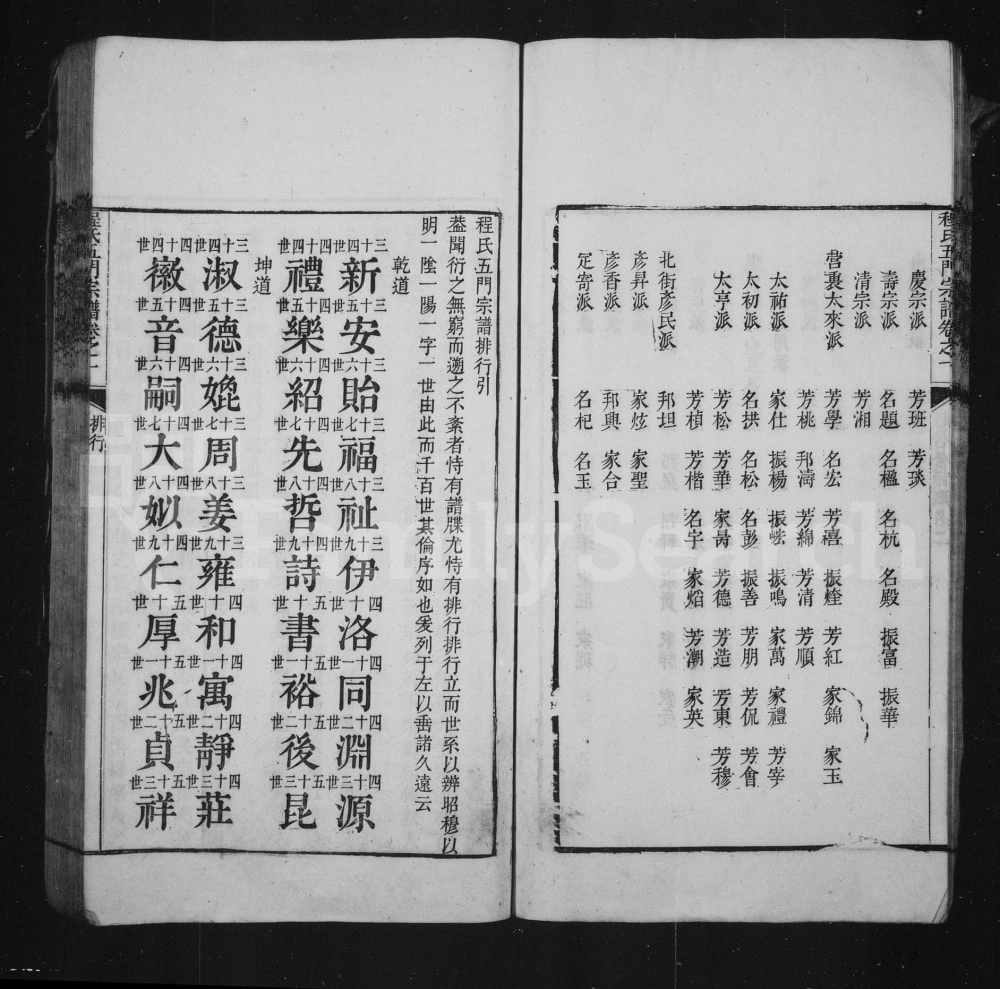 程氏五門宗譜卷之一
慶宗派 芳班 芳琰
壽宗派 名題 名楹 名杭 名殿 振富 振華
清宗派 芳湘
營裏太來派 芳學 名宏 芳禧 振煃 芳紅 家錦 家玉
芳桃 邦濤 芳綿 芳清 芳順
太祐派 家仕 振楊 振鋐 振鳴 家萬 家禮 芳宰
太初派 名洪 名松 名彭 振善 芳朋 芳侃 芳會
太亨派 芳松 芳華 家昺 芳德 芳造 芳東 芳穆
芳楨 芳楷 名宇 家熖 芳潮 家英
北街彥民派 邦坦
彥昇派 家炫 家聖
彥香派 邦興 家合
定寄派 名杞 名玉
程氏五門宗譜排行引
葢聞衍之無窮而遡之不紊者恃有譜牒尤恃有排行排行立而世系以辨昭穆以
明一陰一陽一字一世由此而千百世其倫序如也爰列于左以垂諸久遠云
乾道
三十四世新三十五世安三十六世貽三十七世福三十八世祉三十九世伊四十世洛四十一世同四十二世淵四十三世源
四十四世禮四十五世樂四十六世紹四十七世先四十八世哲四十九世詩五十世書五十一世裕五十二世後五十三世昆
坤道
三十四世淑三十五世德三十六世媲三十七世周三十八世姜三十九世雍四十世和四十一世寓四十二世靜四十三世莊
四十四世徽四十五世音四十六世嗣四十七世大四十八世姒四十九世仁五十世厚五十一世兆五十二世貞五十三世祥
程氏五門宗譜卷之一 排行
FamilySearch